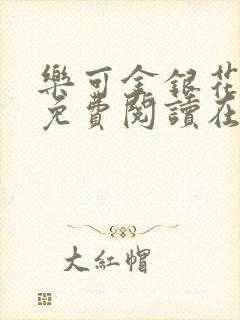 樂可金銀花
免費閱讀在
大紅帽